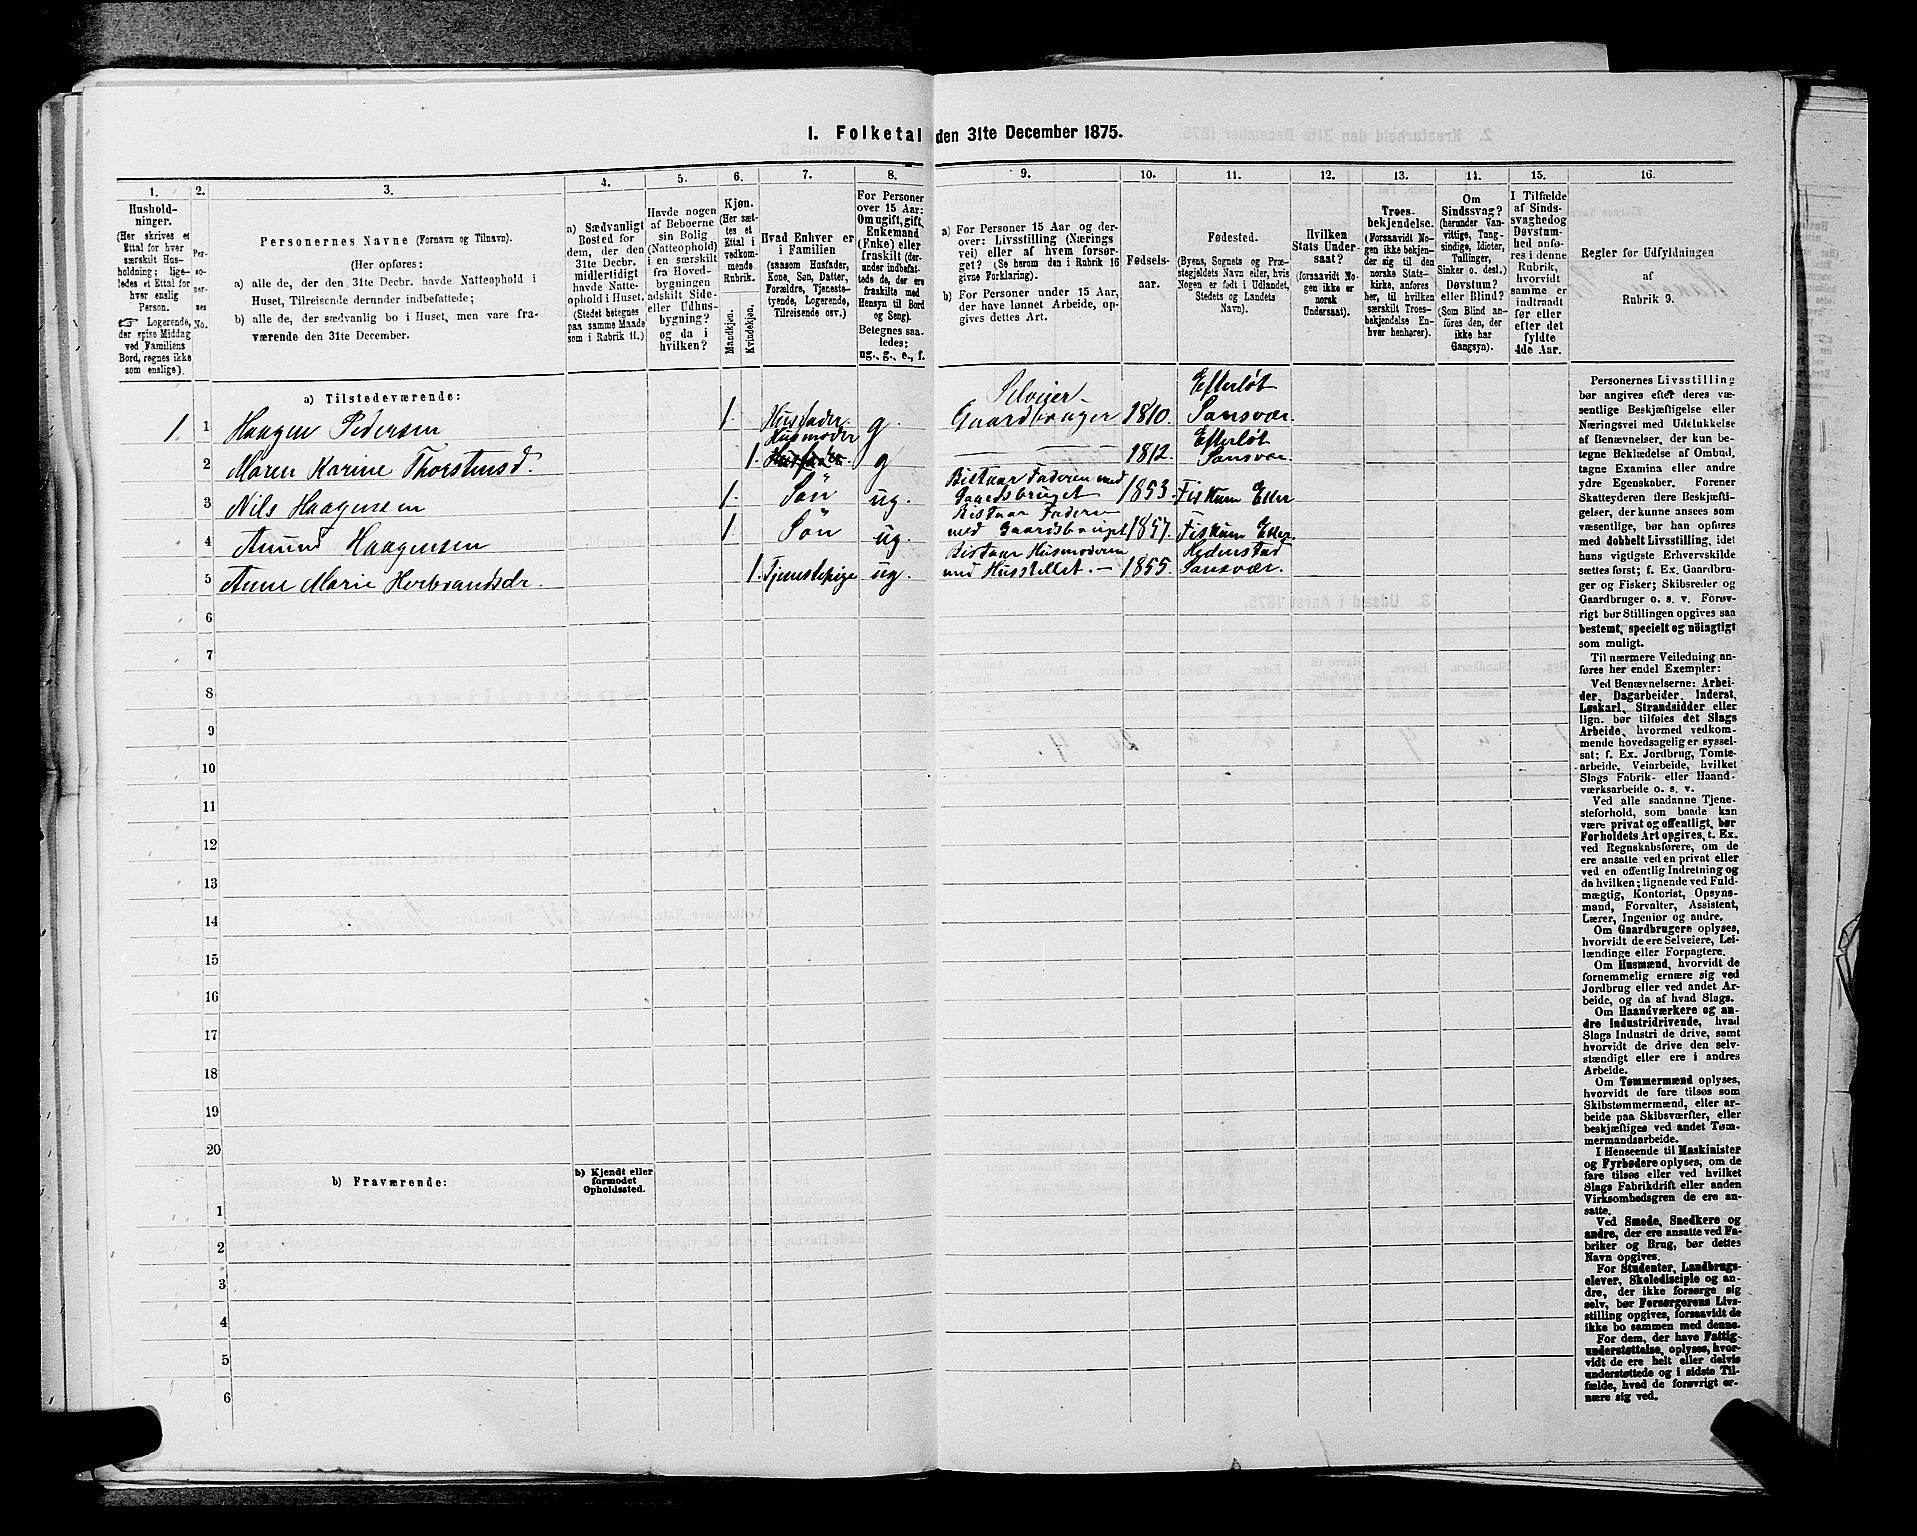 I. Folketal den 31te December 1875.
1.
2.
3.
4.
5.
6.
7.
8.
9.
10.
11.
12.
13.
14.
15.
16.
Hushold-
ninger.
(Her skrives et
Ettal for hver
særskilt Hus-
holdning; lige-
ledes et Ettal for
hver enslig
Person.
☞ Logerende,
der spise Middag
ved Familiens
Bord, regnes ikke
som enslige).
Per-
so-
nes
No.
Personernes Navne (Fornavn og Tilnavn).
(Her opføres:
a) alle de, der den 31te Decbr. havde Natteophold i
Huset, Tilreisende derunder indbefattede;
b) alle de, der sædvanlig bo i Huset, men vare fra-
værende den 31te December.
a) Sædvanligt
Bosted for
dem, der den
31te Decbr.
midlertidigt
havde Natte-
ophold i Huset.
(Stedet betegnes
paa samme Maade
som i Rubrik 11.)
Havde nogen
af Beboerne
sin Bolig
(Natteophold)
i en særskilt
fra Hoved-
bygningen
adskilt Side-
eller Udhus-
bygning?
og da i
hvilken?
Kjøn.
(Her sæt-
tes et
Ettal i
vedkom-
mende
Rubrik.
Mandkjøn.
Kvindekjøn.
Hvad Enhver er
i Familien
(saasom Husfader,
Kone, Søn, Datter,
Forældre, Tjeneste-
tyende, Logerende,
Tilreisende osv.)
For Personer
over 15 Aar:
Om ugift, gift,
Enkemand
(Enke) eller
fraskilt (der-
under indbefat-
tede de, der ere
fraskilte med
Hensyn til Bord
og Seng).
Betegnes saa-
ledes:
ug., g., e., f.
a) For Personer 15 Aar og der-
over: Livsstilling (Nærings
vei) eller af hvem forsør-
get? (Se herom den i Rubrik 16
givne Forklaring).
b) For Personer under 15 Aar,
der have lønnet Arbeide, op-
gives dettes Art.
Fødsels-
aar.
Fødested.
(Byens, Sognets og Præ-
stegjeldets Navn eller, hvis
Nogen er født i Udlandet,
Stedets og Landets
Navn).
Hvilken
Stats Under-
saat?
(forsaavidt No-
gen ikke er
norsk
Undersaat).
Troes-
bekjendelse.
(Forsaavidt No-
gen ikke bekjen-
der sig til den
norske Stats-
kirke, anføres
her, til hvilken
særskilt Troes-
bekjendelse En-
hver henhører).
Om
Sindssvag?
(herunder Van-
vittige, Tung-
sindige, Idioter,
Tullinger,
Sinker o. desl.)
Døvstum?
eller Blind?
(Som Blind an-
føres den, der
ikke har
Gangsyn).
I Tilfælde
af Sinds-
svaghed og
Døvstum-
hed anfø-
res i denne
Rubrik,
hvorvidt
samme er
indtraadt
før eller
efter det
fyldte
4de Aar.
Regler for Udfyldningen
af
Rubrik 9.
a) Tilstedeværende:
1 1 Haagen Pedersen 1. Husfader. g. Selveier- Gaardbruger 1810. Efterløt Sansvær.
2 Maren Karine Thorstensd. 1. Husmoder g — — 1812. Efterløt Sansvær.
3 Nils Haagensen 1. Søn ug. Bistaar Faderen med Gaardsbruget 1853. Fiskum Eker
4 Amund Haagensen 1. Søn ug. Bistaar Faderen med Gaardsbruget 1857. Fiskum Eker.
5 Anne Marie Herbrandsdr. 1. Tjenestepige ug. Bistaar Husmoderen med Husstellet. — 1855. Hedenstad Sansvær.
6
7
8
9
10
11
12
13
14
15
16
17
18
19
20
b) Fraværende:
b) Kjendt eller
formodet
Opholdssted.
1
2
3
4
5
6
Personernes Livsstilling
bør angives efter deres væ-
sentlige Beskjæftigelse eller
Næringsvei med Udelukkelse
af Benævnelser, der kun be-
tegne Beklædelse af Ombud,
tagne Examina eller andre
ydre Egenskaber. Forener
Skatteyderen flere Beskjæfti-
gelser, der kunne ansees som
væsentlige, bør han opføres
med dobbelt Livsstilling, idet
hans vigtigste Erhvervskilde
sættes først; f. Ex. Gaardbru-
ger og Fisker; Skibsreder og
Gaardbruger o. s. v. Forøv-
rigt bør Stillingen opgives saa
bestemt, specielt og nöiagtigt
som muligt.
Til nærmere Veiledning an-
føres her endel Exempler:
Ved Benævnelserne: Arbei-
der, Dagarbeider, Inderst,
Løskarl, Strandsidder eller
lign. bør tilføies det Slags
Arbeide, hvormed vedkom-
mende hovedsagelig er syssel-
sat; f. Ex. Jordbrug, Tomte-
arbeide, Veiarbeide, hvilket
Slags Fabrik- eller Haand-
værksarbeide o. s. v.
Ved alle saadanne Tjene-
steforhold, som baade kan
være privat og offentligt, bør
Forholdets Art opgives, t. Ex.
ved Regnskabsførere, om de
ere ansatte ved en privat eller
ved en offentlig Indretning og
da hvilken; lignende ved Fuld-
mægtig, Kontorist, Opsyns-
mand, Forvalter, Assistent,
Lærer, Ingeniør og andre.
Om Gaardbrugere oplyses,
hvorvidt de ere Selveiere, Lei-
lændinge eller Forpagtere.
Om Husmænd, hvorvidt de
fornemmelig ernære sig ved
Jordbrug eller ved andet Ar-
beide, og da af hvad Slags.
Om Haandværkere og an-
dre Industridrivende, hvad
Slags Industri de drive, samt
hvorvidt de drive den selv-
stændigt eller ere i andres
Arbeide.
Om Tømmermænd oplyses,
hvorvidt de fare tilsøs som
Skibstømmermænd, eller ar-
beide paa Skibsværfter, eller
beskjæftiges ved andet Tøm-
mermandsarbeide.
I Henseende til Maskinister
og Fyrbødere oplyses, om de
fare tilsøs eller ved hvilket
Slags Fabrikdrift eller anden
Virksomhedsgren de ere an-
satte.
Ved Smede, Snedkere og
andre, der ere ansatte ved Fa-
briker og Brug, bør dettes
Navn opgives.
For Studenter, Landbrugs-
elever, Skoledisciple og an-
dre, der ikke forsørge sig
selv, bør Forsørgerens Livs-
stilling opgives, forsaavidt de
ikke bo sammen med denne.
For dem, der have Fattig-
understøttelse, oplyses, hvor-
vidt de ere helt eller delvis
understøttede og i sidste Til-
fælde, hvad de forøvrigt er-
nære sig ved.